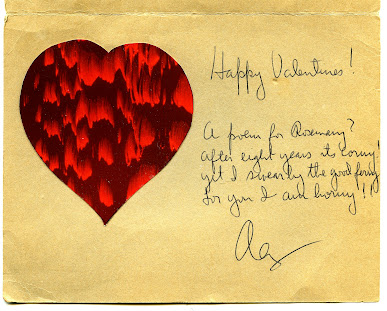 Happy Valentines!
A poem for Rosemary?
After eight years its corny!
yet I swear by the good
for you I am horny!!